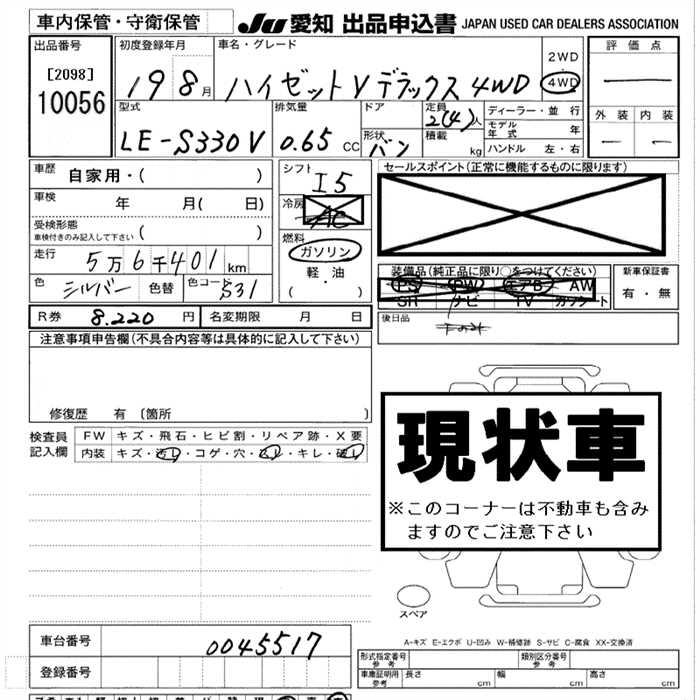 車内保管・守衛保管
JU 愛知 出品申込書 JAPAN USED CAR DEALERS ASSOCIATION
出品番号
[2098]
10056
初度登録年月
19 8月
車名・グレード
ハイゼットV デラックス 4WD
2WD
・
4WD
評価点
外装 内装
型式
LE-S330V
排気量
0.65 CC
ドア
形状
バン
定員
2(4)人
積載
kg
ディーラー・並行
モデル年式 年
ハンドル 左・右
車歴 自家用・( )
車検 年 月( 日)
受検形態
車検付きのみ記入して下さい ( )
走行 5万6千401km
色 シルバー 色替 色コード S31
シフト
I5
冷房
AC
燃料
ガソリン
軽・油
( ・ )
セールスポイント(正常に機能するものに限ります)
装備品(純正品に限り○をつけてください)
PS PW エアB AW
SR ナビ TV カセット
新車保証書
有・無
後日品
R券 8.220 円 名変期限 月 日
注意事項申告欄(不具合内容等は具体的に記入して下さい)
修復歴 有 〔箇所 〕
検査員記入欄
FW キズ・飛石・ヒビ割・リペア跡・X要
内装 キズ・汚レ・コゲ・穴・スレ・キレ・破レ
現状車
※このコーナーは不動車も含み
ますのでご注意下さい
スペア
A-キズ E-エクボ U-凹み W-補修跡 S-サビ C-腐食 XX-交換済
車台番号 0045517
登録番号
形式指定番号 参考 類別区分番号 参考
車庫証明用 参考 長さ cm 幅 cm 高さ cm